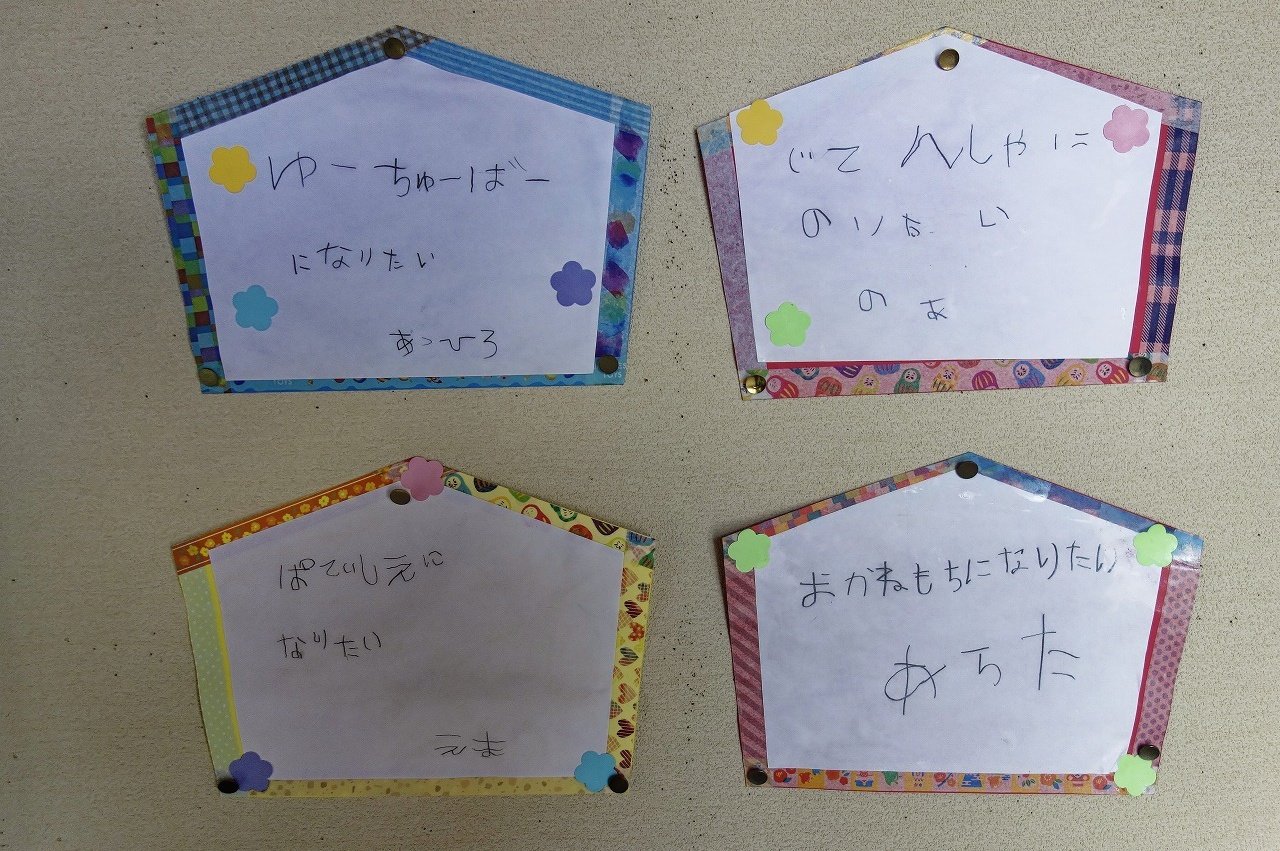 ゆーちゅーばー
になりたい
あつひろ
じてんしゃに
のりたい
のあ
ぱてぃしえに
なりたい
えま
おかねもちになりたい
あらた